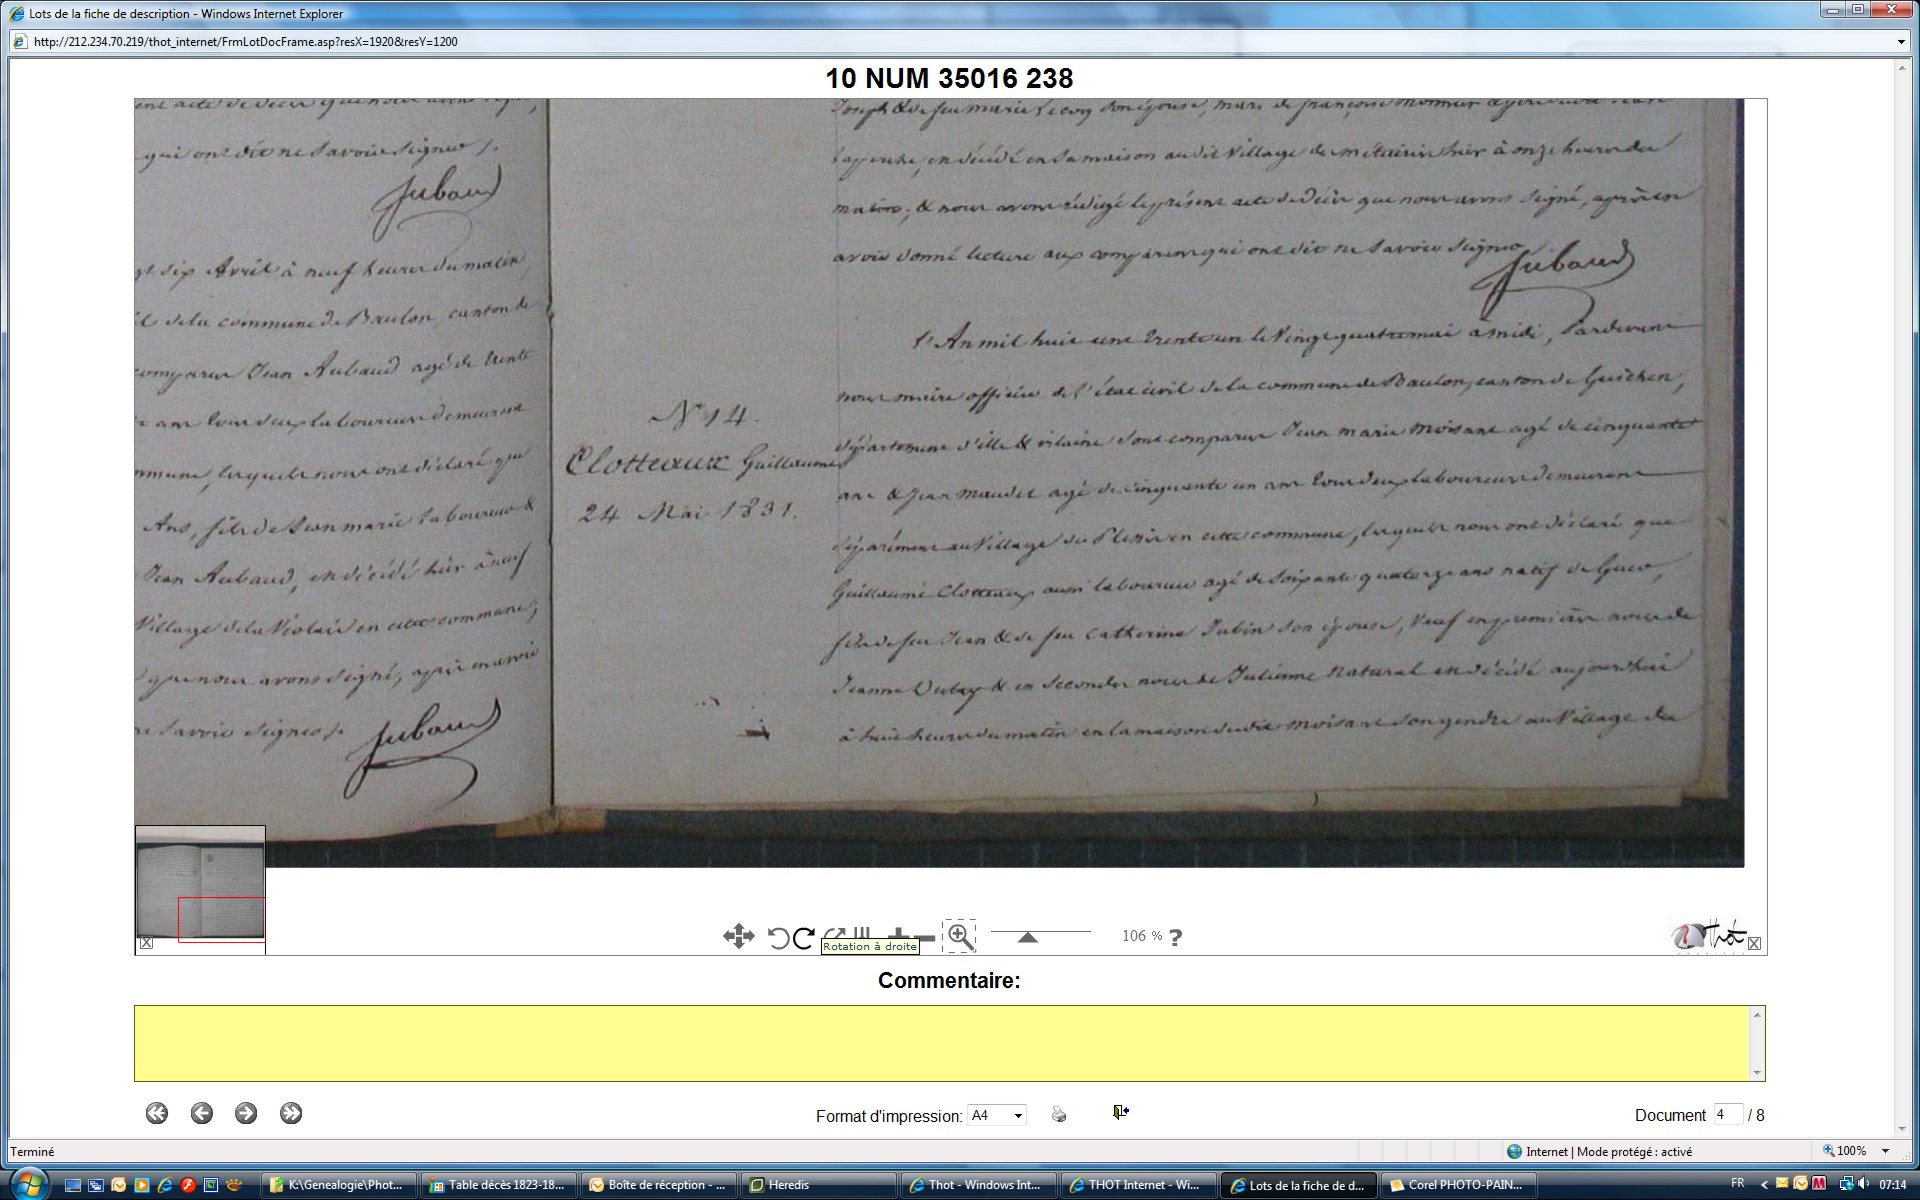 Lots de la fiche de description - Windows Internet Explorer
http://212.234.70.219/thot_internet/FrmLotDocFrame.asp?resX=1920&resY=1200
10 NUM 35016 238
qui ont dit ne Savoir Signer
Jubaud
six Avril à neuf heures du matin
de la commune de Baulon, canton de
Jean Aubaud agé de trente
ans tous deux laboureurs demeurant
lesquels nous ont déclaré que
Ans, fils de Jean marie laboureur &
Jean Aubaud, en décédé hier à neuf
Village de la Violais en cette commune,
que nous avons Signé, après en avoir
Savoir Signer
Jubaud
Joseph & de feu marie Lecoq son épouse, mari de françoise monnier
en décédé en sa maison audit Village de métairie hier à onze heures du
matin, & nous avons rédigé le présent acte de Décès que nous avons Signé, après en
avoir donné lecture aux comparens qui ont dit ne Savoir Signer
Jubaud
N° 14.
Clotteaux Guillaume
24 Mai 1831.
l'An mil huit cent trente un le Vingt quatre mai à midi, Pardevant
nous maire officier de l'état civil de la commune de Baulon, canton de Guichen,
département d'ille & vilaine sont comparus Jean marie Moisant agé de cinquante
ans & Jean Maudet agé de cinquante un ans tous deux laboureurs demeurant
séparément au Village du Plessis en cette commune, lesquels nous ont déclaré que
Guillaume Clotteaux aussi laboureur agé de Soixante quatorze ans natif de
fils de feu Jean & de feu Catherine Jubin son épouse, Veuf en première noces de
Jeanne & en Secondes noces de Julienne Natural en décédé aujourd'hui
à huit heures du matin en la maison dudit Moisant son gendre au Village du
Rotation à droite
106 % ?
Thot
Commentaire:
Format d'impression: A4
Document 4 / 8
Terminé
Internet | Mode protégé : activé
100%
K:\Genealogie\Phot...
Table décès 1823-18...
Boîte de réception - ...
Heredis
Thot - Windows Int...
THOT Internet - Wi...
Lots de la fiche de d...
Corel PHOTO-PAIN...
FR
07:14